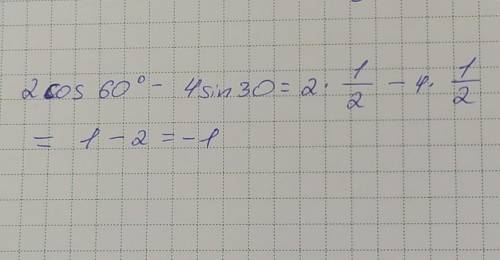 2cos 60° - 4sin30 = 2 · 1/2 - 4 · 1/2
= 1 - 2 = -1